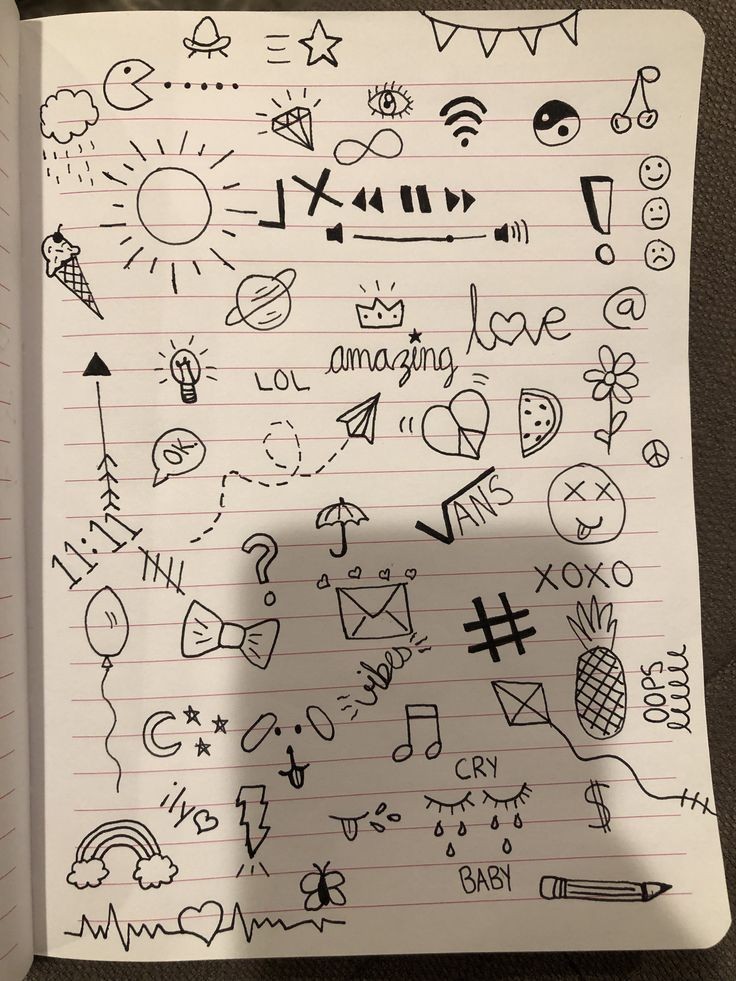 love
@
amazing
LOL
OK
√ANS
11:11
XOXO
#
vibes
OOPS
CRY
ily
$
BABY